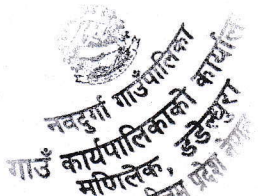 नवदुर्गा गाउँपालिका
गाउँ कार्यपालिकाको कार्यालय
मणिलेक, डडेल्धुरा
प्रदेश नेपाल